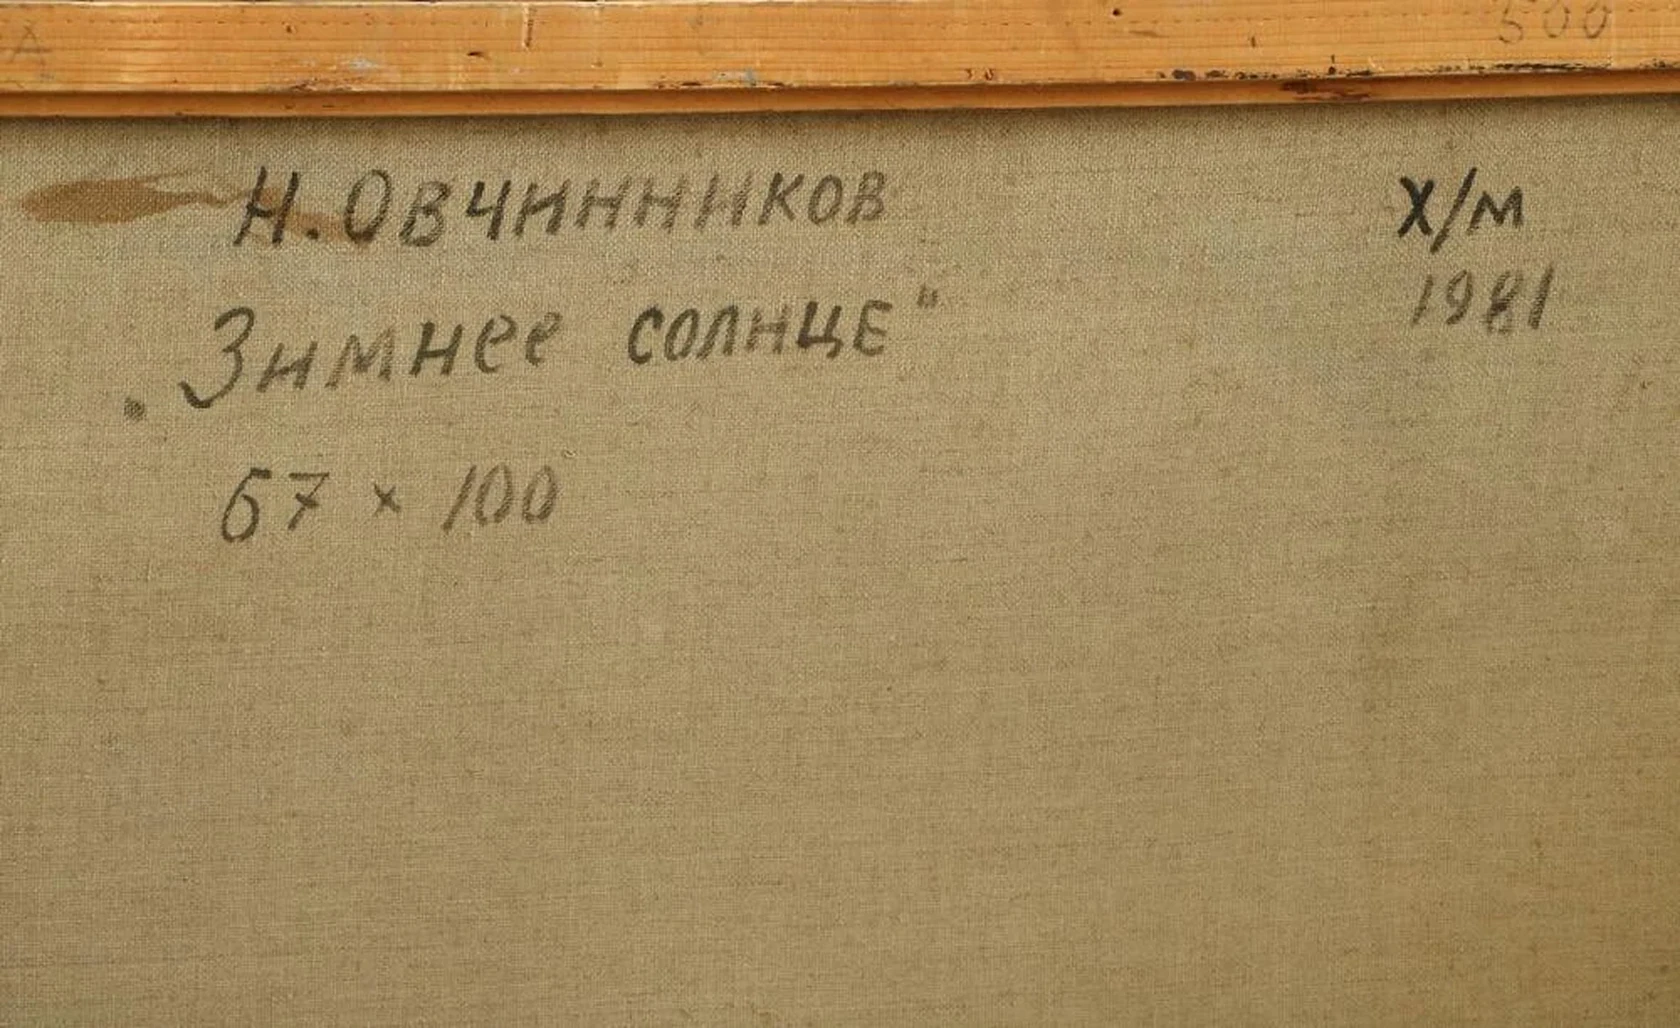 500
Н. Овчинников х/м
„Зимнее солнце" 1981
67 × 100